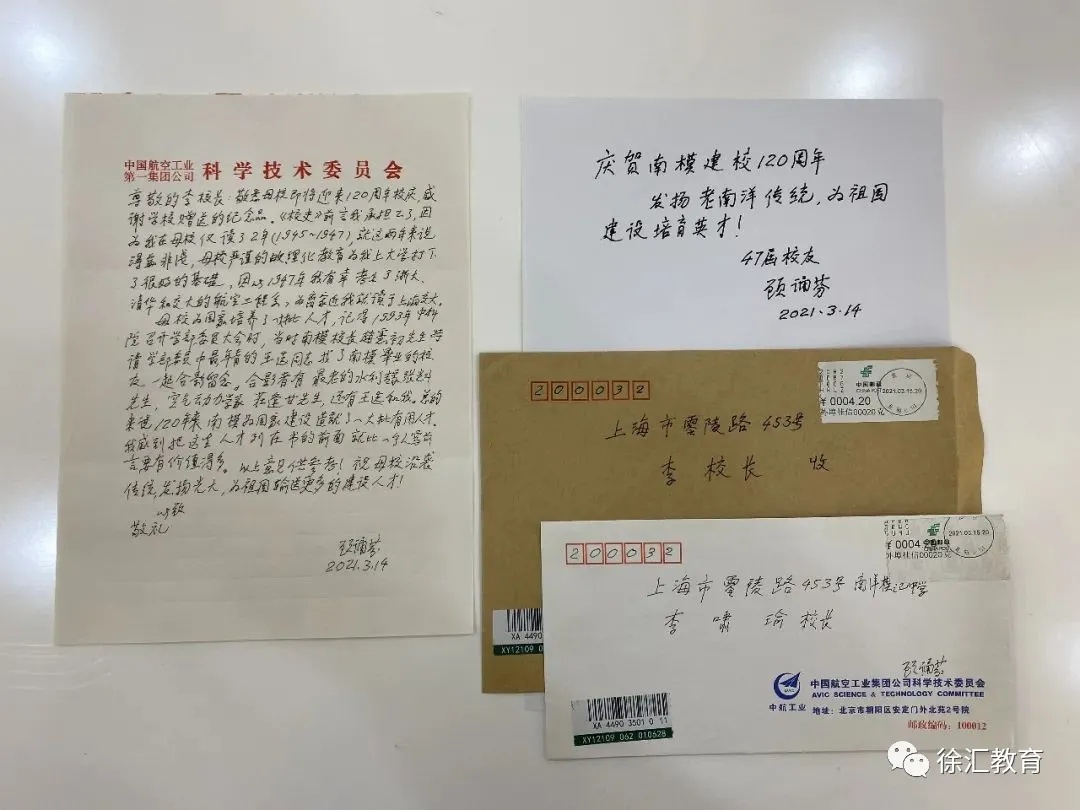 中国航空工业
第一集团公司 科学技术委员会
尊敬的李校长：敬悉母校即将迎来120周年校庆，感
谢学校赠送的纪念品。《校史》前言我承担不了，因
为我在母校仅读了2年(1945~1947)，就这两年来说
得益非浅，母校严谨的数理化教育为我上大学打下
了很好的基础，因此1947年我有幸考上了浙大、
清华和交大的航空工程系，为离家近我就读于上海交大。
母校为国家培养了一大批人才，记得1993年中科
院召开学部委员大会时，当时南模校长
请学部委员中最年青的王迅同志找了南模毕业的校
友一起合影留念。合影者有最老的水利
先生，空气动力学家庄逢甘先生，还有王迅和我。总的
来说，120年来南模为国家建设造就了一大批有用人才。
我感到把这些人才列在书的前面就比一个人写前
言要有价值得多。以上意见供参考！祝母校沿袭
传统，发扬光大，为祖国输送更多的建设人才！
此致
敬礼
顾诵芬
2021.3.14
庆贺南模建校120周年
发扬老南洋传统，为祖国
建设培育英才！
47届校友
顾诵芬
2021.3.14
200032
中国邮政
CHINA POST
2021.03.15.20
¥0004.20
外埠挂信00020克
上海市零陵路453号
李校长 收
XA 4490
XY12109 0
200032
中国邮政
2021.03.15.20
¥0004.
外埠挂信00020克
上海市零陵路453号南洋模范中学
李啸瑜校长
顾诵芬
中航工业
中国航空工业集团公司科学技术委员会
AVIC SCIENCE & TECHNOLOGY COMMITTEE
地址：北京市朝阳区安定门外北苑2号院
邮政编码：100012
XA 4490 3501 0 11
XY12109 062 010628
徐汇教育